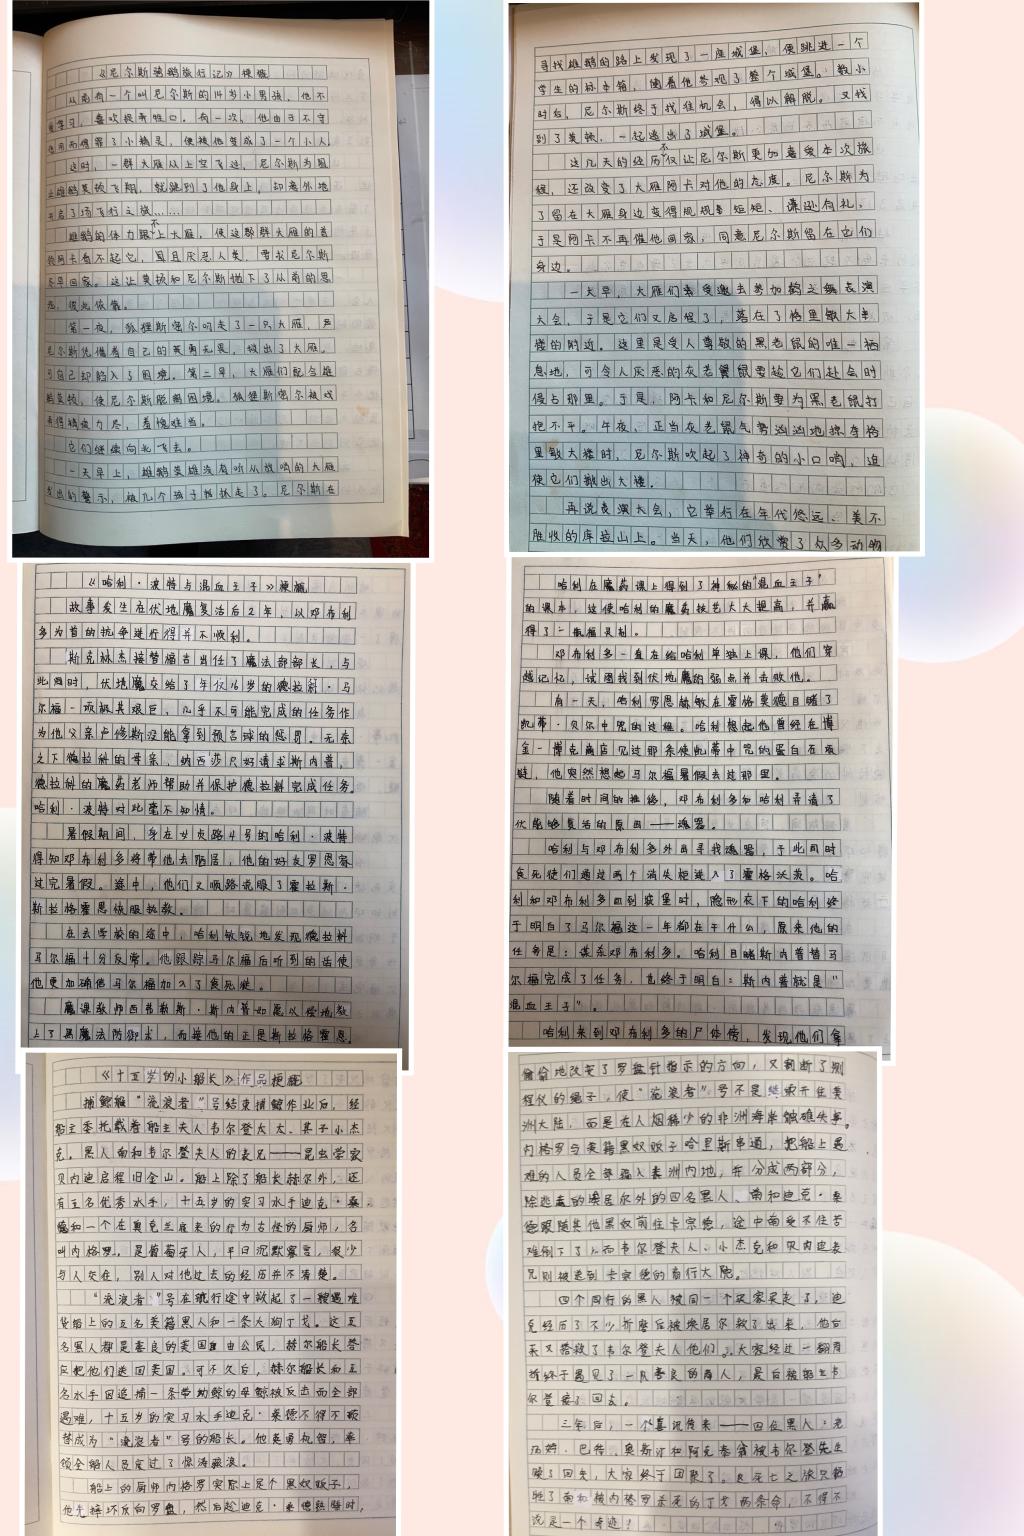 《尼尔斯骑鹅旅行记》梗概
从前有一个叫尼尔斯的14岁小男孩，他不
爱学习，喜欢捉弄牲口。有一次，他由于不守
信用而得罪了小精灵，便被他变成了一个小人
这时，一群大雁从上空飞过，尼尔斯为阻
止雄鹅莫顿飞翔，就跳到了他身上，却意外地
开启了场飞行之旅……
雄鹅的体力跟不上大雁，使这群大雁的首
领阿卡看不起它，而且厌恶人类，要求尼尔斯
尽早回家。这让莫顿和尼尔斯抛下了从前的恩
怨，彼此依靠。
第一夜，狐狸斯密尔叼走了一只大雁，
尼尔斯凭借着自己的英勇无畏，救出了大雁。
可自己却陷入了困境。第二早，大雁们配合雄
鹅莫顿，使尼尔斯脱离困境。狐狸斯密尔被戏
弄得精疲力尽，羞愧难当。
它们继续向北飞去。
一天早上，雄鹅莫顿没有听从放哨的大雁
发出的警示，被几个孩子抓走了。尼尔斯在
寻找雄鹅的路上发现了一座城堡，便跳进一个
学生的标本箱，随着他参观了整个城堡。数小
时后，尼尔斯终于找准机会，得以解脱。又找
到了莫顿，一起逃出了城堡。
这几天的经历不仅让尼尔斯更加喜爱本次旅
程，还改变了大雁阿卡对他的态度。尼尔斯为
了留在大雁身边变得规规矩矩、谦逊有礼，
于是阿卡不再催他回家，同意尼尔斯留在它们
身边。
一大早，大雁们受邀去参加鹤之舞表演
大会，于是它们又启程了，落在了格里敏大单
楼的附近。这里是受人尊敬的黑老鼠的唯一栖
息地，可令人厌恶的灰老鼠要趁它们赴会时
侵占那里。于是，阿卡和尼尔斯要为黑老鼠打
抱不平。午夜，正当灰老鼠气势汹汹地掠夺格
里敏大楼时，尼尔斯吹起了神奇的小口哨，迫
使它们撤出大楼。
再说表演大会，它举行在年代悠远、美不
胜收的库拉山上。当天，他们欣赏了众多动物
《哈利·波特与混血王子》梗概
故事发生在伏地魔复活后2年，以邓布利
多为首的抗争进行得并不顺利。
斯克林杰接替福吉当任了魔法部部长，与
此同时，伏地魔交给了年仅16岁的德拉科·马
尔福一项极其艰巨，几乎不可能完成的任务作
为他父亲卢修斯没能拿到预言球的惩罚。无奈
之下德拉科的母亲，纳西莎只好请求斯内普，
德拉科的魔药老师帮助并保护德拉科完成任务。
哈利·波特对此毫不知情。
暑假期间，身在女贞路4号的哈利·波特
得知邓布利多将带他去陋居，他的好友罗恩家
过完暑假。途中，他们又顺路说服了霍拉斯·
斯拉格霍恩恢服执教。
在去学校的途中，哈利敏锐地发现德拉科
马尔福十分反常。他跟踪马尔福后听到的话使
他更加确信马尔福加入了食死徒。
魔课教师西弗勒斯·斯内普如愿以偿地教
上了黑魔法防御术，而接他的正是斯拉格霍恩
哈利在魔药课上得到了神秘的“混血王子”
的课本，这使哈利的魔药技艺大大提高，并赢
得了一瓶福灵剂。
邓布利多一直在给哈利单独上课，他们穿
越记忆，试图找到伏地魔的弱点并击败他。
有一天，哈利罗恩赫敏在霍格莫德目睹了
凯蒂·贝尔中咒的过程。哈利想起他曾经在博
金-博克商店见过那条使凯蒂中咒的蛋白石项
链，他突然想起马尔福暑假去过那里。
随着时间的推移，邓布利多和哈利弄清了
伏能够复活的原因——魂器。
哈利与邓布利多外出寻找魂器，于此同时
食死徒们通过两个消失柜进入了霍格沃茨。哈
利和邓布利多回到城堡时，隐形衣下的哈利终
于明白了马尔福这一年都在干什么，原来他的
任务是：谋杀邓布利多。哈利目睹斯内普替马
尔福完成了任务，也终于明白：斯内普就是“
混血王子”。
哈利来到邓布利多的尸体旁，发现他们拿
《十五岁的小船长》作品梗概
捕鲸船“流浪者”号结束捕鲸作业后，经
船主委托载着船主夫人韦尔登太太、其子小杰
克。黑人南和韦尔登夫人的表兄——昆虫学家
贝内迪启程旧金山。船上除了船长赫尔外，还
有五名优秀水手，十五岁的实习水手迪克·桑
德和一个在奥克兰雇来的行为古怪的厨师，名
叫内格罗，是葡萄牙人，平日沉默寡言，很少
与人交往，别人对他过去的经历并不清楚。
“流浪者”号在航行途中救起了一艘遇难
货船上的五名美籍黑人和一条大狗丁戈。这五
名黑人都是善良的美国自由公民，赫尔船长答
应把他们送回美国。可不久后，赫尔船长和五
名水手因追捕一条带幼鲸的母鲸被反击而全部
遇难，十五岁的实习水手迪克·桑德不得不顶
替成为“流浪者”号的船长。他英勇机智，率
领全船人员度过了惊涛骇浪。
船上的厨师内格罗实际上是个黑奴贩子，
他先摔坏反向罗盘，然后趁迪克·桑德熟睡时，
偷偷地改变了罗盘针指示的方向，又割断了测
程仪的绳子，使“流浪者”号不是继续开往美
洲大陆，而是在人烟稀少的非洲海岸触礁失事。
内格罗与美籍黑奴贩子哈里斯串通，把船上遇
难的人员全等骗入非洲内地，并分成两部分，
除逃走的埃居尔外的四名黑人、南和迪克·桑
德跟随其他黑奴前往卡宗德，途中南受不住苦
难倒下了，而韦尔登夫人、小杰克和贝内迪表
兄则被送到卡宗德的商行大院。
四个同行的黑人被同一个买家买走了，迪
克经历了不少折磨后被埃居尔救了出来，他后
来又搭救了韦尔登夫人他们。大家经过一翻周
折终于遇见了一队善良的商人，最后被船主韦
尔登接了回去。
三年后，一个喜讯传来——四位黑人：老
汤姆、巴特、奥斯汀和阿克泰翁被韦尔登先生
赎了回来，大家终于团聚了。九死一生之旅只牺
牲了南和被内格罗杀死的丁戈两条命，不得不
说是一个奇迹？